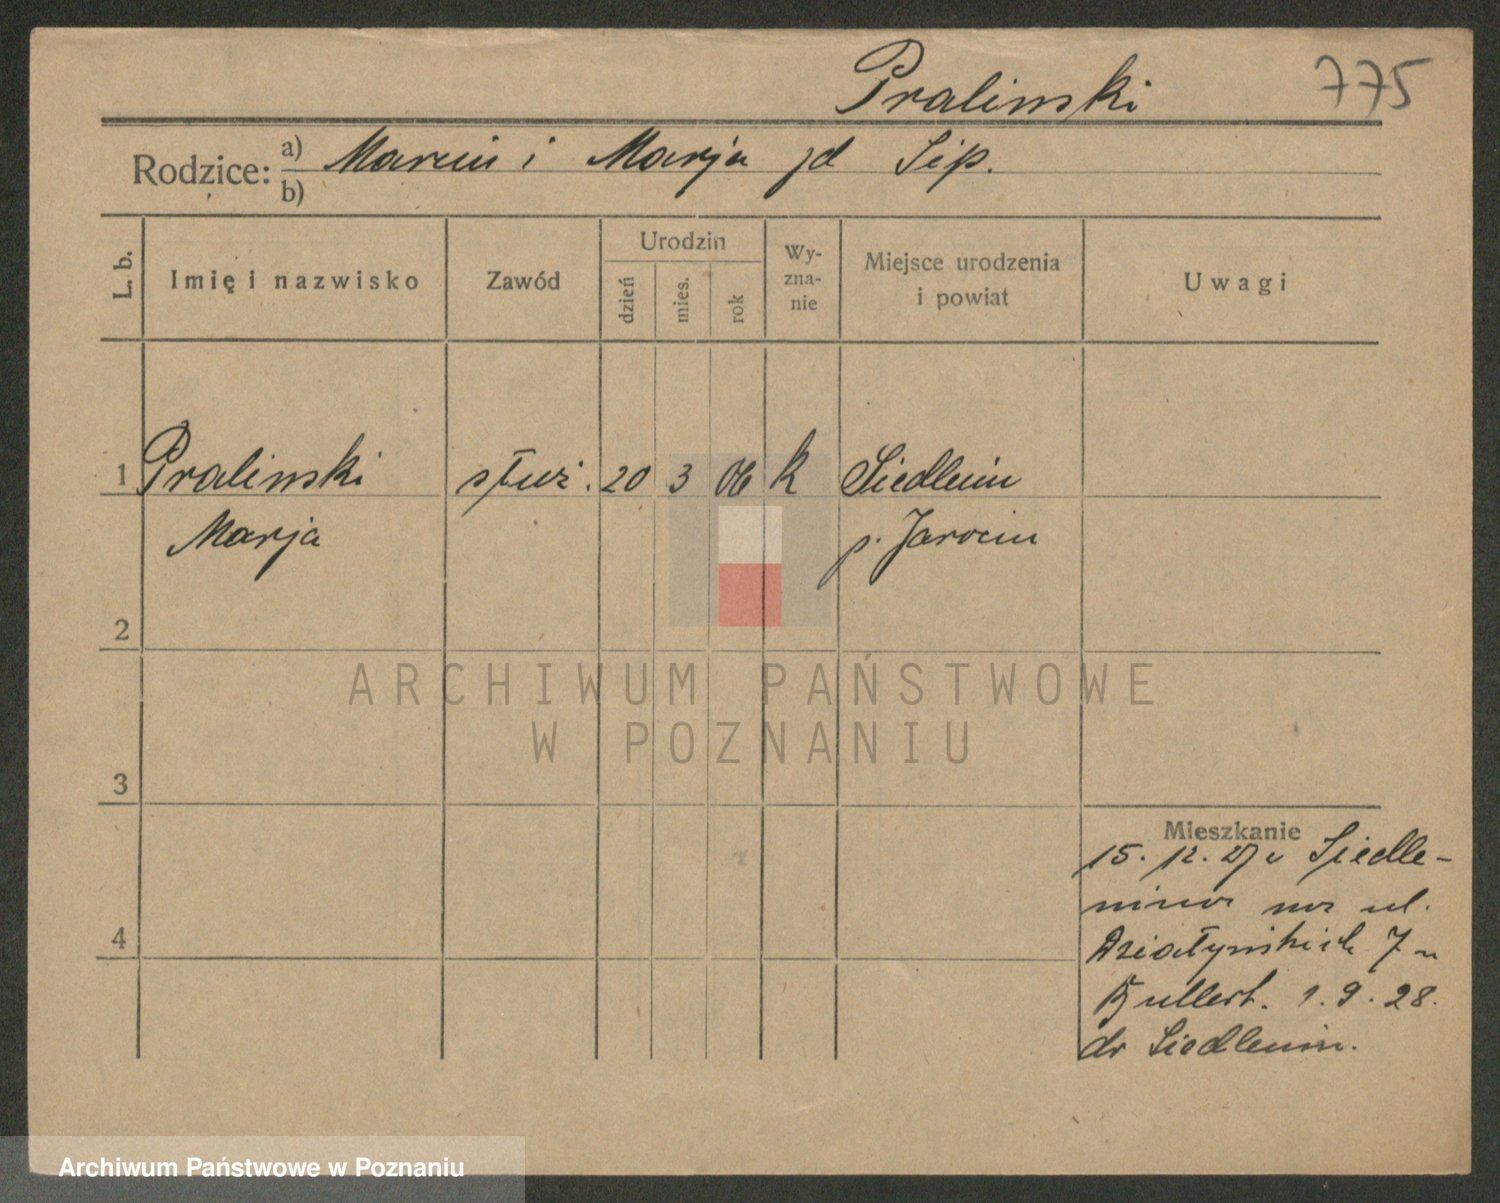 Pralinski 775
Rodzice: a) Marcin i Marja zd Sip.
b)
L. b.
Imię i nazwisko
Zawód
Urodzin
dzień
mies.
rok
Wy-
zna-
nie
Miejsce urodzenia
i powiat
Uwagi
1 Pralinski służ. 20 3 06 k Siedlemin
Marja p. Jarocin
2
ARCHIWUM PAŃSTWOWE
W POZNANIU
3
Mieszkanie
15. 12. 27 z Siedle-
mina na ul.
4 Działyńskich 7 u
1. 9. 28.
do Siedlemin.
Archiwum Państwowe w Poznaniu